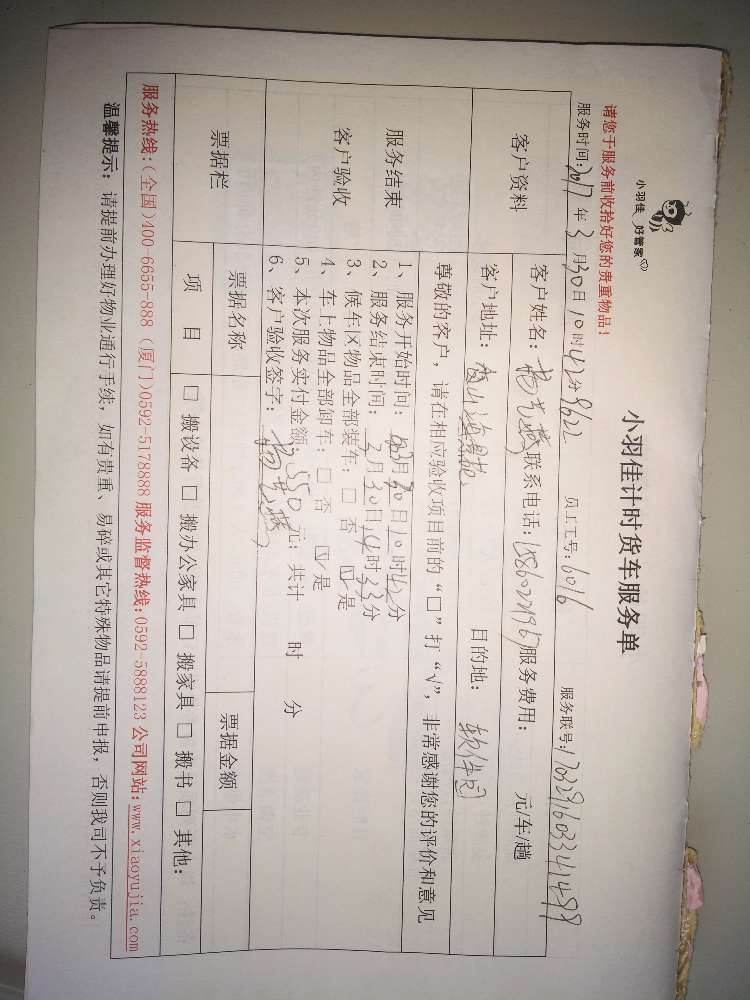 小羽佳 好管家
小羽佳计时货车服务单
请您于服务前收拾好您的贵重物品！
服务时间：2017年3月30日10时42分 8622 员工工号：6016 服务联号：
客户资料
客户姓名： 联系电话： 服务费用： 元/车/趟
客户地址： 目的地：软件园
服务结束
客户验收
尊敬的客户，请在相应验收项目前的“□”打“√”，非常感谢您的评价和意见
1、服务开始时间：3月30日10时42分
2、服务结束时间：3月30日14时33分
3、候车区物品全部装车：□ 否 ☑ 是
4、车上物品全部卸车：□ 否 ☑ 是
5、本次服务实付金额：550元；共计 时 分
6、客户验收签字：
票据栏
票据名称 票据金额
项 目 □ 搬设备 □ 搬办公家具 □ 搬家具 □ 搬书 □ 其他：
服务热线：(全国)400-6655-888 (厦门)0592-5178888 服务监督热线：0592-5888123 公司网站：www.xiaoyujia.com
温馨提示：请提前办理好物业通行手续，如有贵重、易碎或其它特殊物品请提前申报，否则我司不予负责。